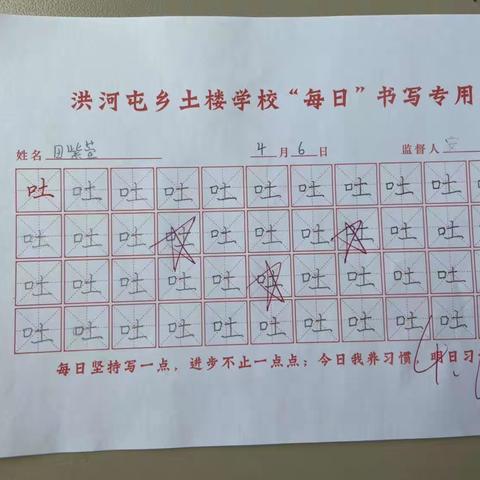 洪河屯乡土楼学校“每日”书写专用
姓名 田紫 4月6日 监督人
吐吐吐吐吐吐吐吐吐吐
吐吐吐吐吐吐吐吐吐吐
吐吐吐吐吐吐吐吐吐吐
吐吐吐吐吐吐吐吐吐吐
每日坚持写一点，进步不止一点点；今日我养习惯，明日习